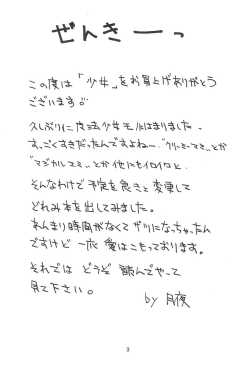 ぜんきーっ
この度は「少女」をお買上げありがとう
ございます。
久しぶりに魔法少女モノにはまりました。
すっごくすきだったんですよねー…"クリィミーマミ"とか
"マジカルエミ"とか他にもイロイロと、
そんなわけで予定を急きょ変更して
どれみ本を出してみました。
あんまり時間がなくてザツになっちゃったん
ですけど一応愛はこもっております。
それでは どうぞ 読んでやって
見て下さい。
by 月夜
3